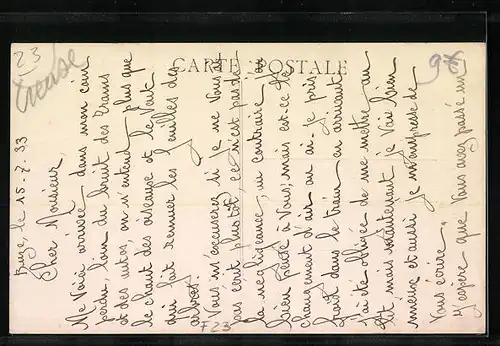 23
Creuse
CARTE POSTALE
9€
le 15-7-33
Cher Monsieur,
Me voici arrivée dans mon coin
perdu loin du bruit des trams
et des autos, on n'entend plus que
le chant des oiseaux et le vent
qui fait remuer les feuilles des
arbres.
Vous m'excuserez si je ne vous ai
pas écrit plus tôt, ce n'est pas de
la négligeance, au contraire j'ai
bien pensé à Vous; mais est-ce le
changement d'air ou ai-je pris
froid dans le train en arrivant
j'ai été obligée de me mettre au
lit mais maintenant je vais bien
mieux et aussi je m'empresse de
Vous écrire.
J'espère que Vous avez passé un
F23